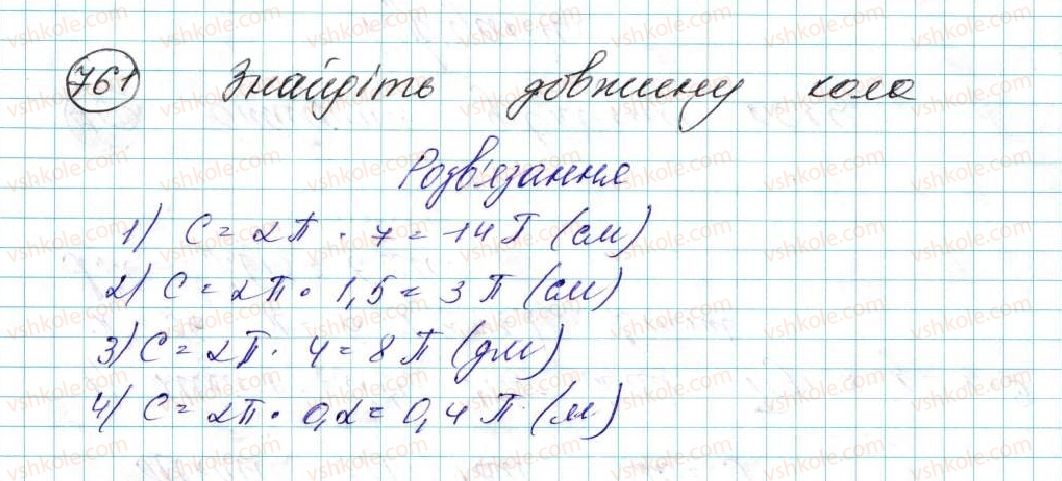 761 Знайдіть довжину кола
Розв'язання
1) C = 2π · 7 = 14π (см)
2) C = 2π · 1,5 = 3π (см)
3) C = 2π · 4 = 8π (дм)
4) C = 2π · 0,2 = 0,4π (м)